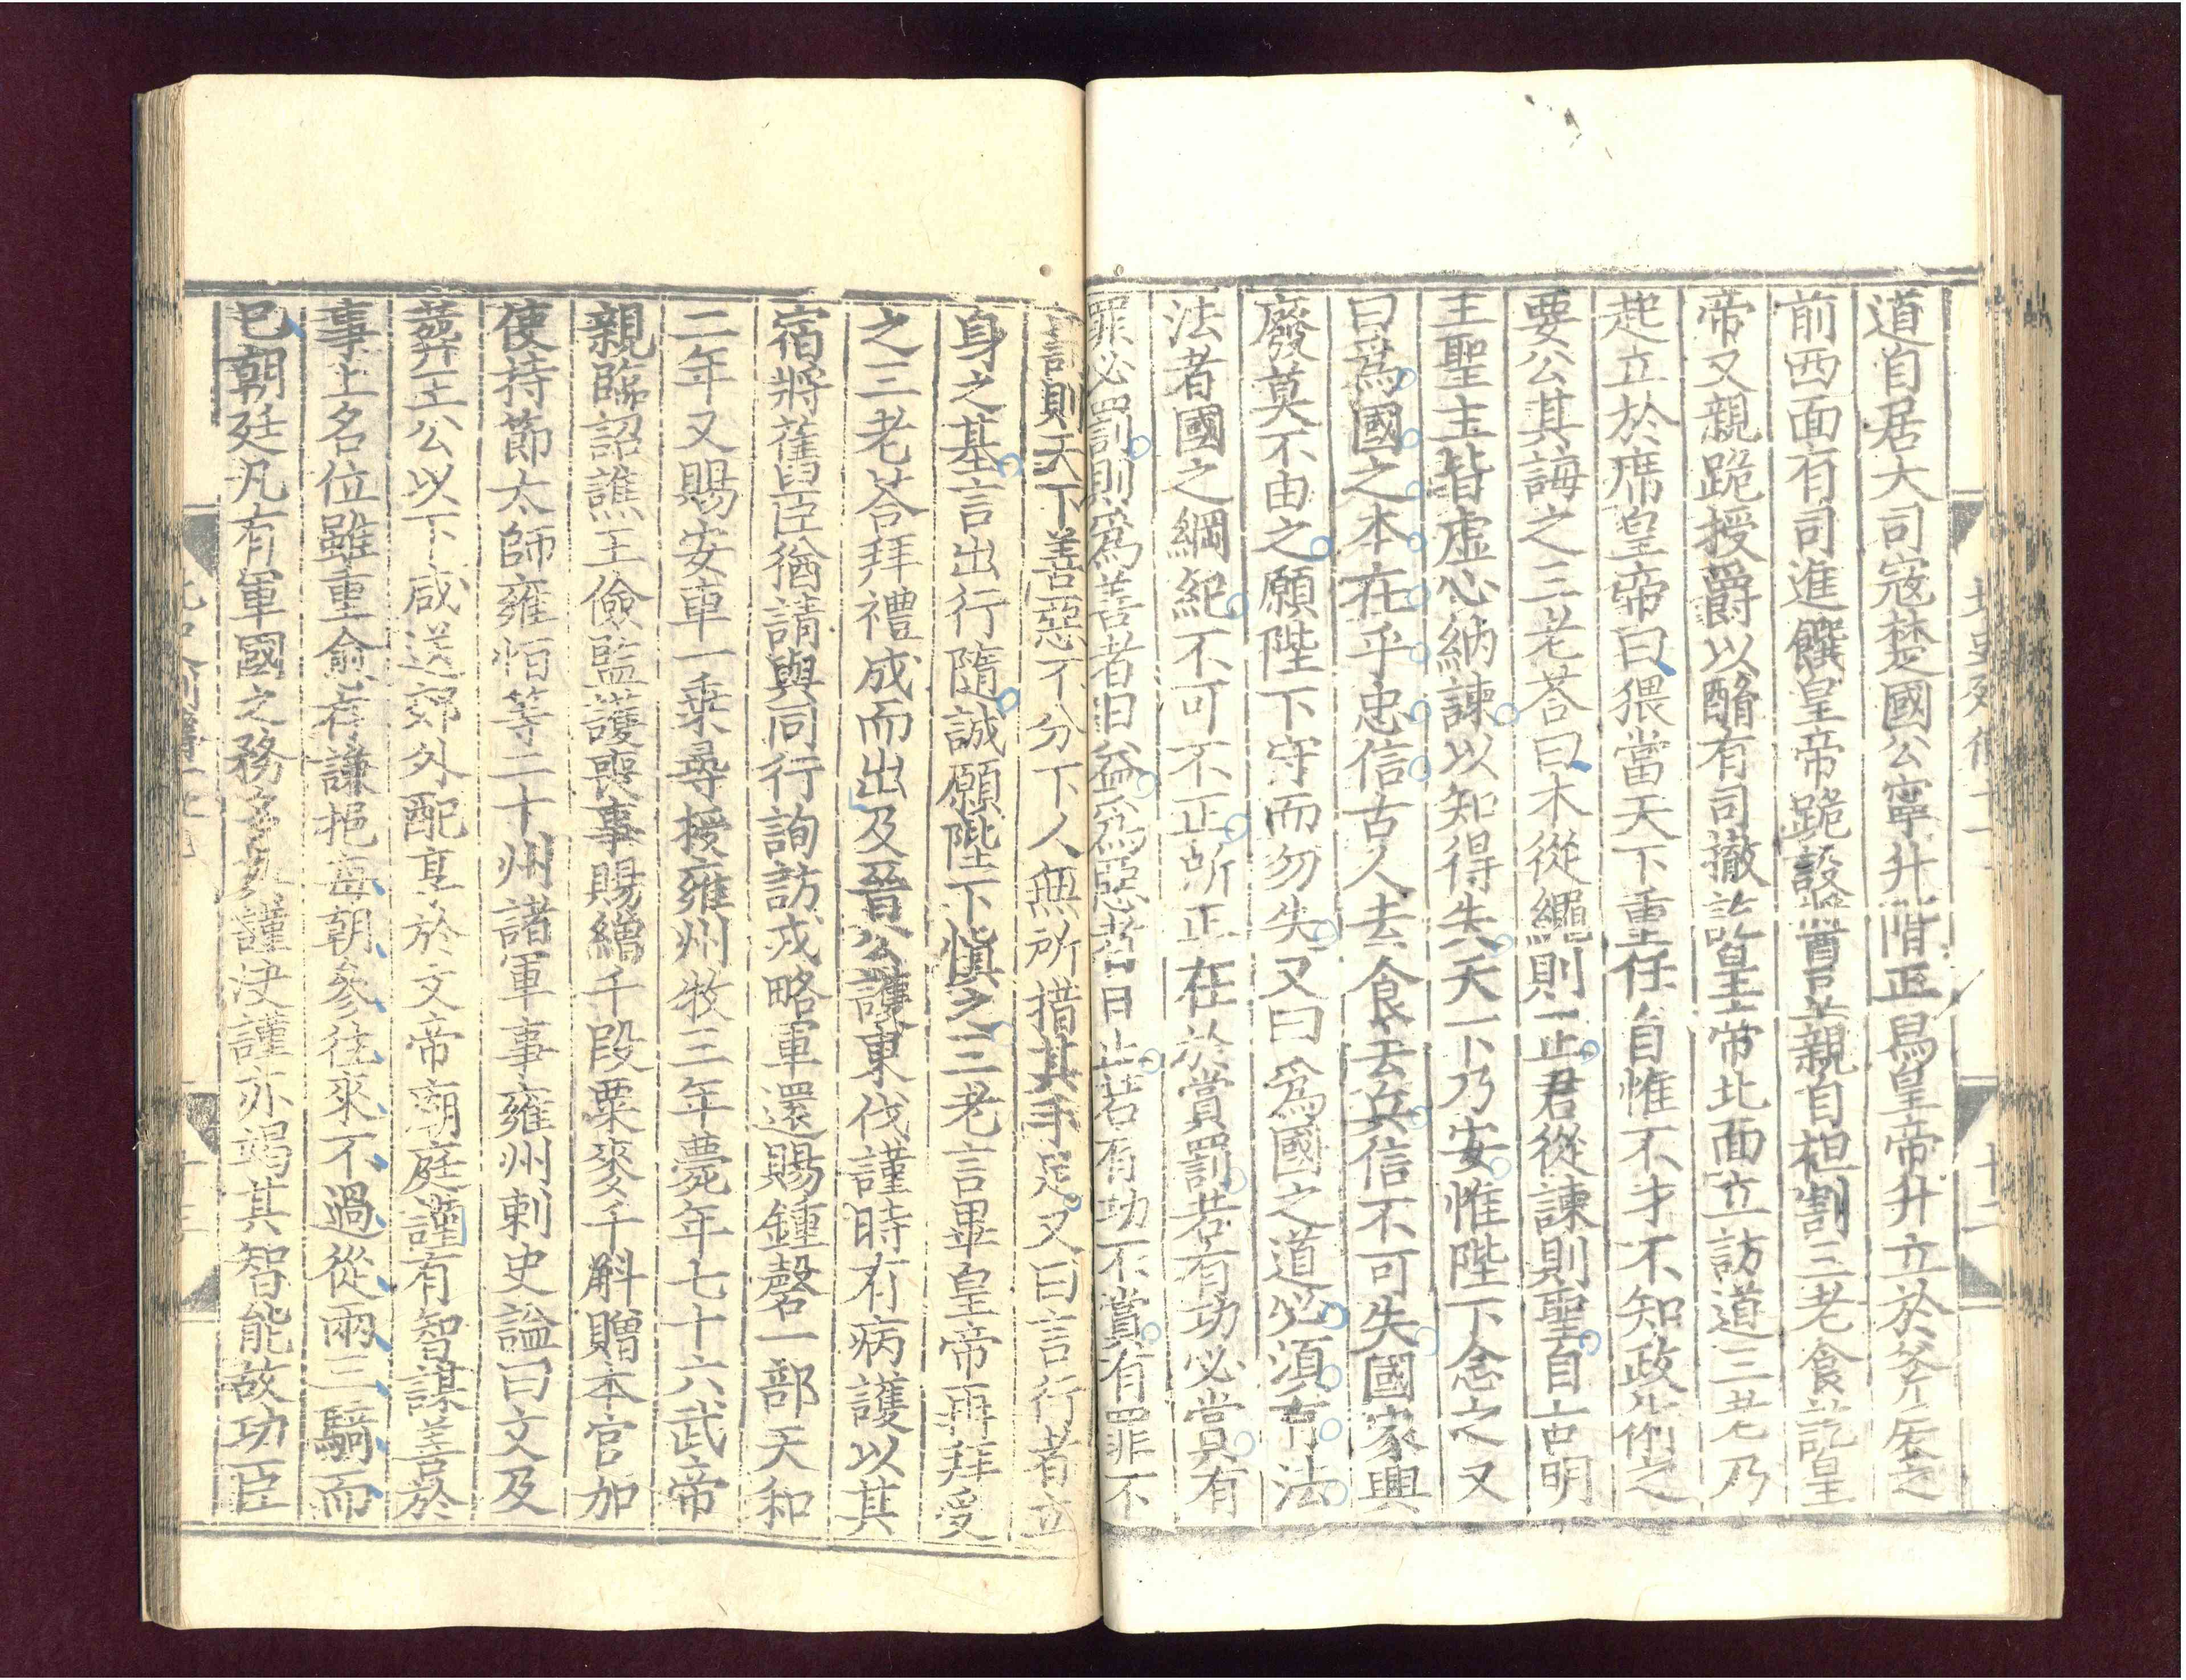 道自居大司寇楚國公寧升階正舄皇帝升立於斧扆之
前西面有司進饌皇帝跪設醬豆親自袒割三老食訖皇
帝又親跪授爵以酳有司撤訖皇帝北面立訪道三老乃
起立於席皇帝曰猥當天下重任自惟不才不知政術之
要公其誨之三老荅曰木從繩則正君從諫則聖自古明
王聖主皆虚心納諫以知得失天下乃安惟陛下念之又
曰爲國之本在乎忠信古人去食去兵信不可失國家興
廢莫不由之願陛下守而勿失又曰爲國之道必須有法
法者國之綱紀不可不正所正在於賞罰若有功必賞有
罪必罰則爲善者日益爲惡者日止若有功不賞有罪不
罰則天下善惡不分下人無所措其手足又曰言行者立
身之基言出行隨誠願陛下慎之三老言畢皇帝再拜受
之三老荅拜禮成而出及晉公護東伐謹時有病護以其
宿將舊臣猶請與同行詢訪戎略軍還賜鍾磬一部天和
二年又賜安車一乗尋授雍州牧三年薨年七十六武帝
親臨詔譙王儉監護喪事賜繒千段粟麥千斛贈本官加
使持節太師雍恒等二十州諸軍事雍州刺史謚曰文及
葬王公以下咸送郊外配享於文帝廟庭謹有智謀善於
事上名位雖重愈存謙挹每朝參往來不過從兩三騎而
已朝廷凡有軍國之務多與謹決謹亦竭其智能故功臣